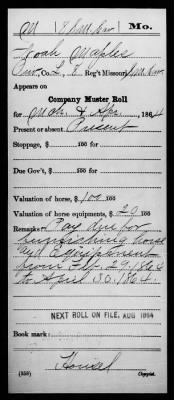 M | 9 S.M. Cav | Mo.
Noah Maples
Pvt. Co. L, 8 Reg't Missouri S.M. Cav
Appears on
Company Muster Roll
for Mch & Apr, 1864
Present or absent Present
Stoppage, $ 100 for
Due Gov't, $ 100 for
Valuation of horse, $ 100 100
Valuation of horse equipments, $ 29 100
Remarks: Pay due for
furnishing horse
and Equipment
from Feb. 29, 1864
to April 30, 1864.
NEXT ROLL ON FILE, AUG 1864
Book mark:
(358) Copyist.